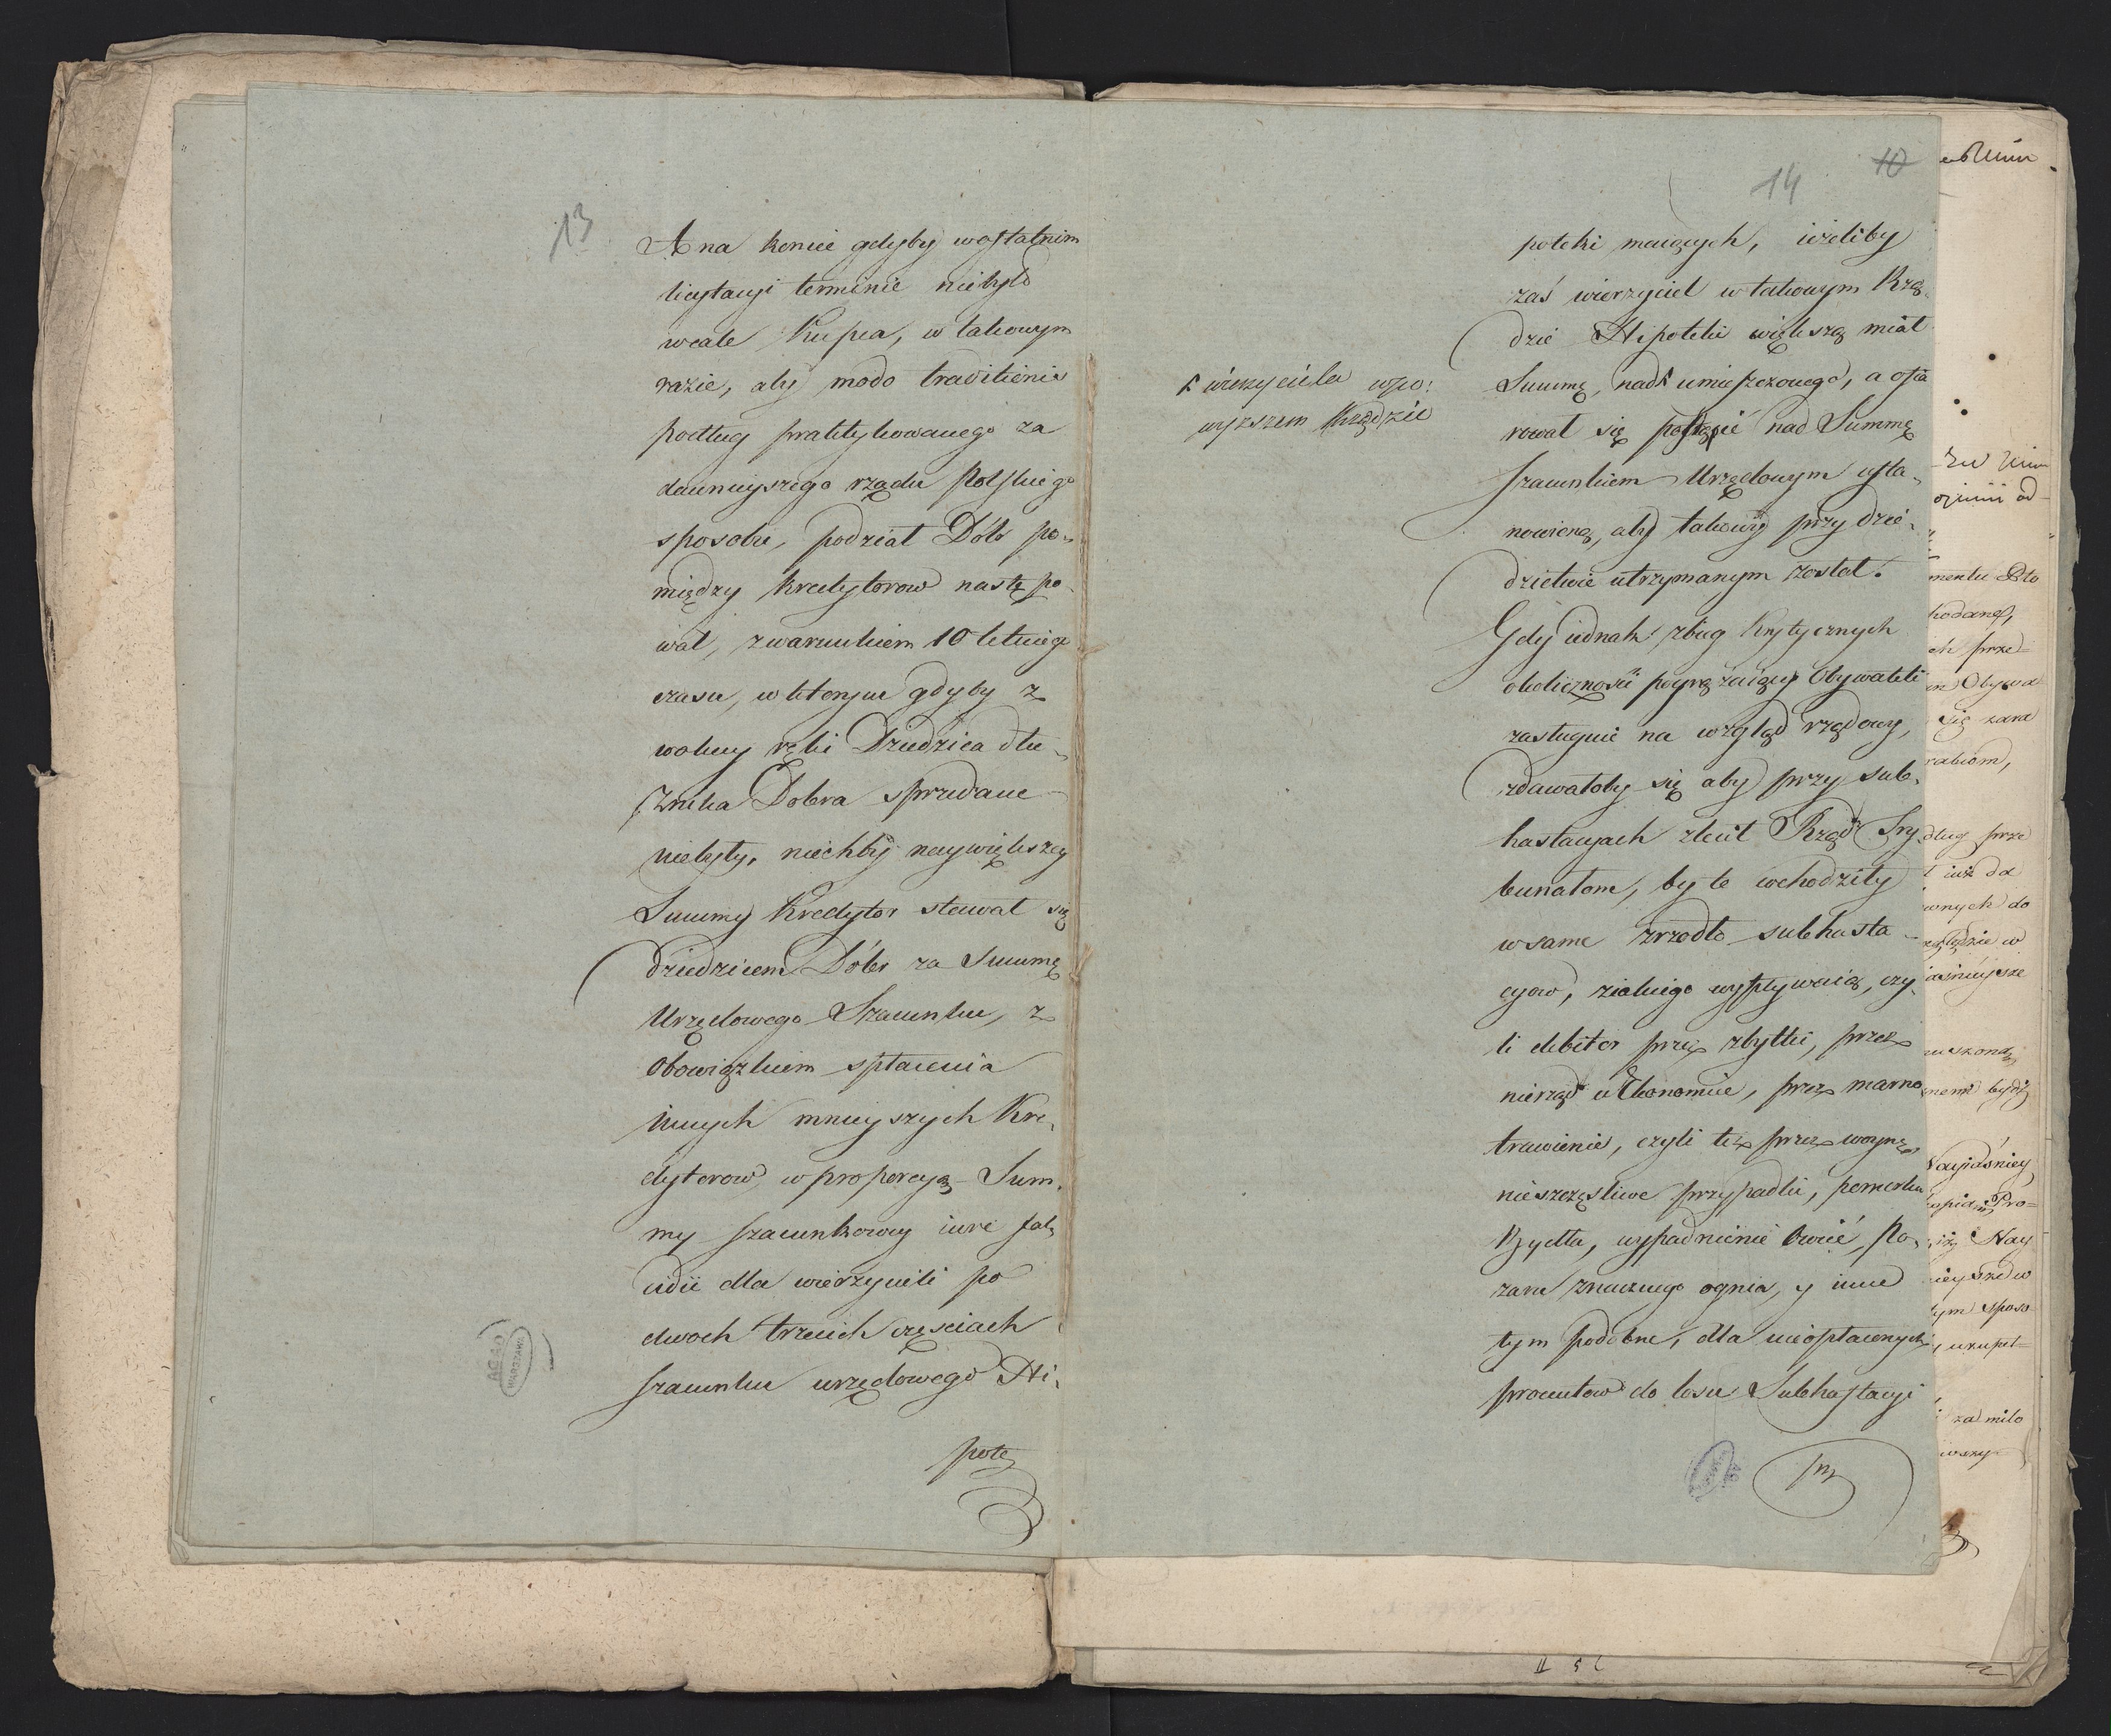 13
A na koniec gdyby wostatnim
licytacyi terminie niebyło
wcale Kupca, w takowym
razie, aby modo traditionis
podług praktykowanego za
dawnieyszego rządu Polskiego
sposobu, podział Dóbr po„
między kredytorow nastę po„
wał, z warunkiem 10 letniego
czasu, w którym gdyby z
wolney ręki Dziedzica dłu„
żnika Dobra sprzedane
niebyły, niechby naywiększey
Summy Kredytor stawał się
dziedzicem Dóbr za Summę
Urzędowego Szacunku, z
Obowiązkiem spłacenia
innych mnieyszych Kre„
dytorow, w proporcyą Sum„
my szacunkowey iure
dla wierzycieli po
dwoch trzecich częsciach
szacunku urzędowego Hi„
pote
AGAD
WARSZAWA
10
14
poteki maiących, ieżeliby
zaś wierzyciel w takowym Rzę„
dzie Hipoteki większą miał
Summę, nad umieszczonego, a ofia
rował się postąpić nad Summę
szacunkiem Urzędowym usta„
nowioną, aby takowy przy dzie„
dzictwie utrzymanym został.
wierzyciela wpo:
wyzszem Rzędzie
Gdy iednak zbieg krytycznych
okolicznosci pogrążaiący Obywateli
zasługuie na wzgląd rządowy,
zdawałoby się aby przy sub„
hastacyach zlecił Rząd Try„
bunałom, by te wchodziły
w same zrzodło subhasta„
cyow, z iakiego wypływaią, czy„
li debitor przez zbytki, przez
nierząd w Ekonomice, przez marno
trawienie, czyli też przez woynę,
nieszczęsliwe przypadki, pomorku
Bydła, wypadnienie Owiec, po„
żaru znacznego ognia, y inne
tym podobne, dla nieopłaconych
procentow do losu Subhastacyi
prz